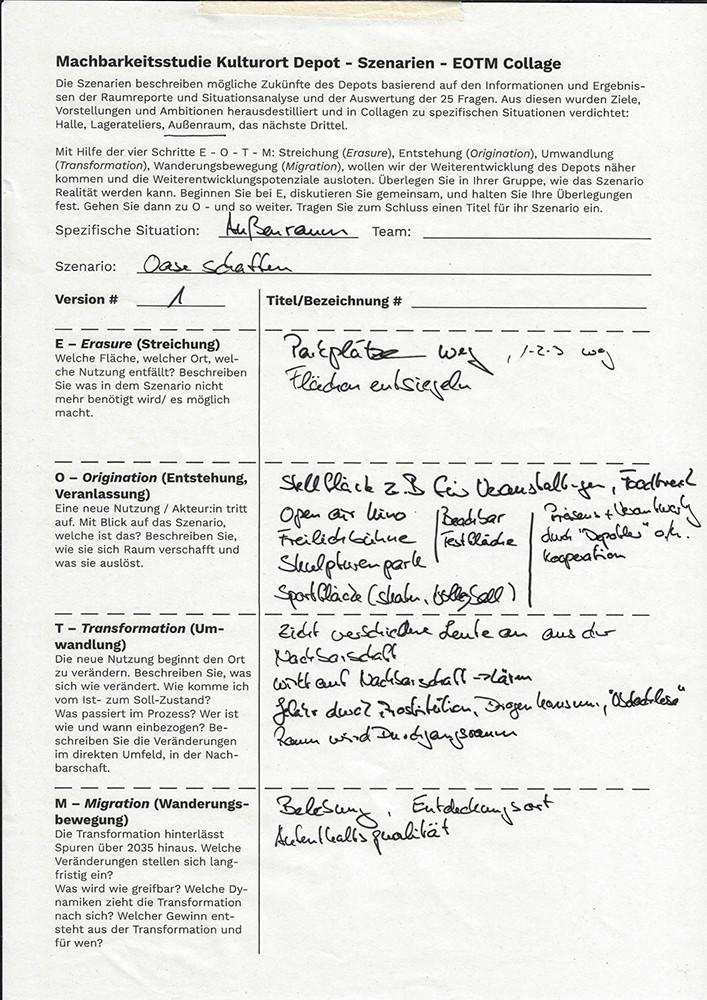 Machbarkeitsstudie Kulturort Depot - Szenarien - EOTM Collage
Die Szenarien beschreiben mögliche Zukünfte des Depots basierend auf den Informationen und Ergebnis-
sen der Raumreporte und Situationsanalyse und der Auswertung der 25 Fragen. Aus diesen wurden Ziele,
Vorstellungen und Ambitionen herausdestilliert und in Collagen zu spezifischen Situationen verdichtet:
Halle, Lagerateliers, Außenraum, das nächste Drittel.
Mit Hilfe der vier Schritte E - O - T - M: Streichung (Erasure), Entstehung (Origination), Umwandlung
(Transformation), Wanderungsbewegung (Migration), wollen wir der Weiterentwicklung des Depots näher
kommen und die Weiterentwicklungspotenziale ausloten. Überlegen Sie in Ihrer Gruppe, wie das Szenario
Realität werden kann. Beginnen Sie bei E, diskutieren Sie gemeinsam, und halten Sie Ihre Überlegungen
fest. Gehen Sie dann zu O - und so weiter. Tragen Sie zum Schluss einen Titel für ihr Szenario ein.
Spezifische Situation: Außenraum Team:
Szenario: Oase schaffen
Version # 1 Titel/Bezeichnung #
E – Erasure (Streichung)
Welche Fläche, welcher Ort, wel-
che Nutzung entfällt? Beschreiben
Sie was in dem Szenario nicht
mehr benötigt wird/ es möglich
macht.
Parkplätze weg, 1-2-3 weg
Flächen entsiegeln
O – Origination (Entstehung,
Veranlassung)
Eine neue Nutzung / Akteur:in tritt
auf. Mit Blick auf das Szenario,
welche ist das? Beschreiben Sie,
wie sie sich Raum verschafft und
was sie auslöst.
Stellfläche z.B für Veranstaltungen, Foodtruck
Open air kino
Freilichtbühne
Skulpturenpark
Sportfläche (skaten, Volleyball)
Testfläche
Präsenz + Verantwortung
durch "Depotler" o.ä.
Kooperation
T – Transformation (Um-
wandlung)
Die neue Nutzung beginnt den Ort
zu verändern. Beschreiben Sie, was
sich wie verändert. Wie komme ich
vom Ist- zum Soll-Zustand?
Was passiert im Prozess? Wer ist
wie und wann einbezogen? Be-
schreiben Sie die Veränderungen
im direkten Umfeld, in der Nach-
barschaft.
Zieht verschiedene Leute an aus der
Nachbarschaft
wirkt auf Nachbarschaft → Lärm
durch Prostitution, Drogenkonsum, "Obdachlose"
Raum wird Durchgangsraum
M – Migration (Wanderungs-
bewegung)
Die Transformation hinterlässt
Spuren über 2035 hinaus. Welche
Veränderungen stellen sich lang-
fristig ein?
Was wird wie greifbar? Welche Dy-
namiken zieht die Transformation
nach sich? Welcher Gewinn ent-
steht aus der Transformation und
für wen?
Belebung, Entdeckungsort
Aufenthaltsqualität